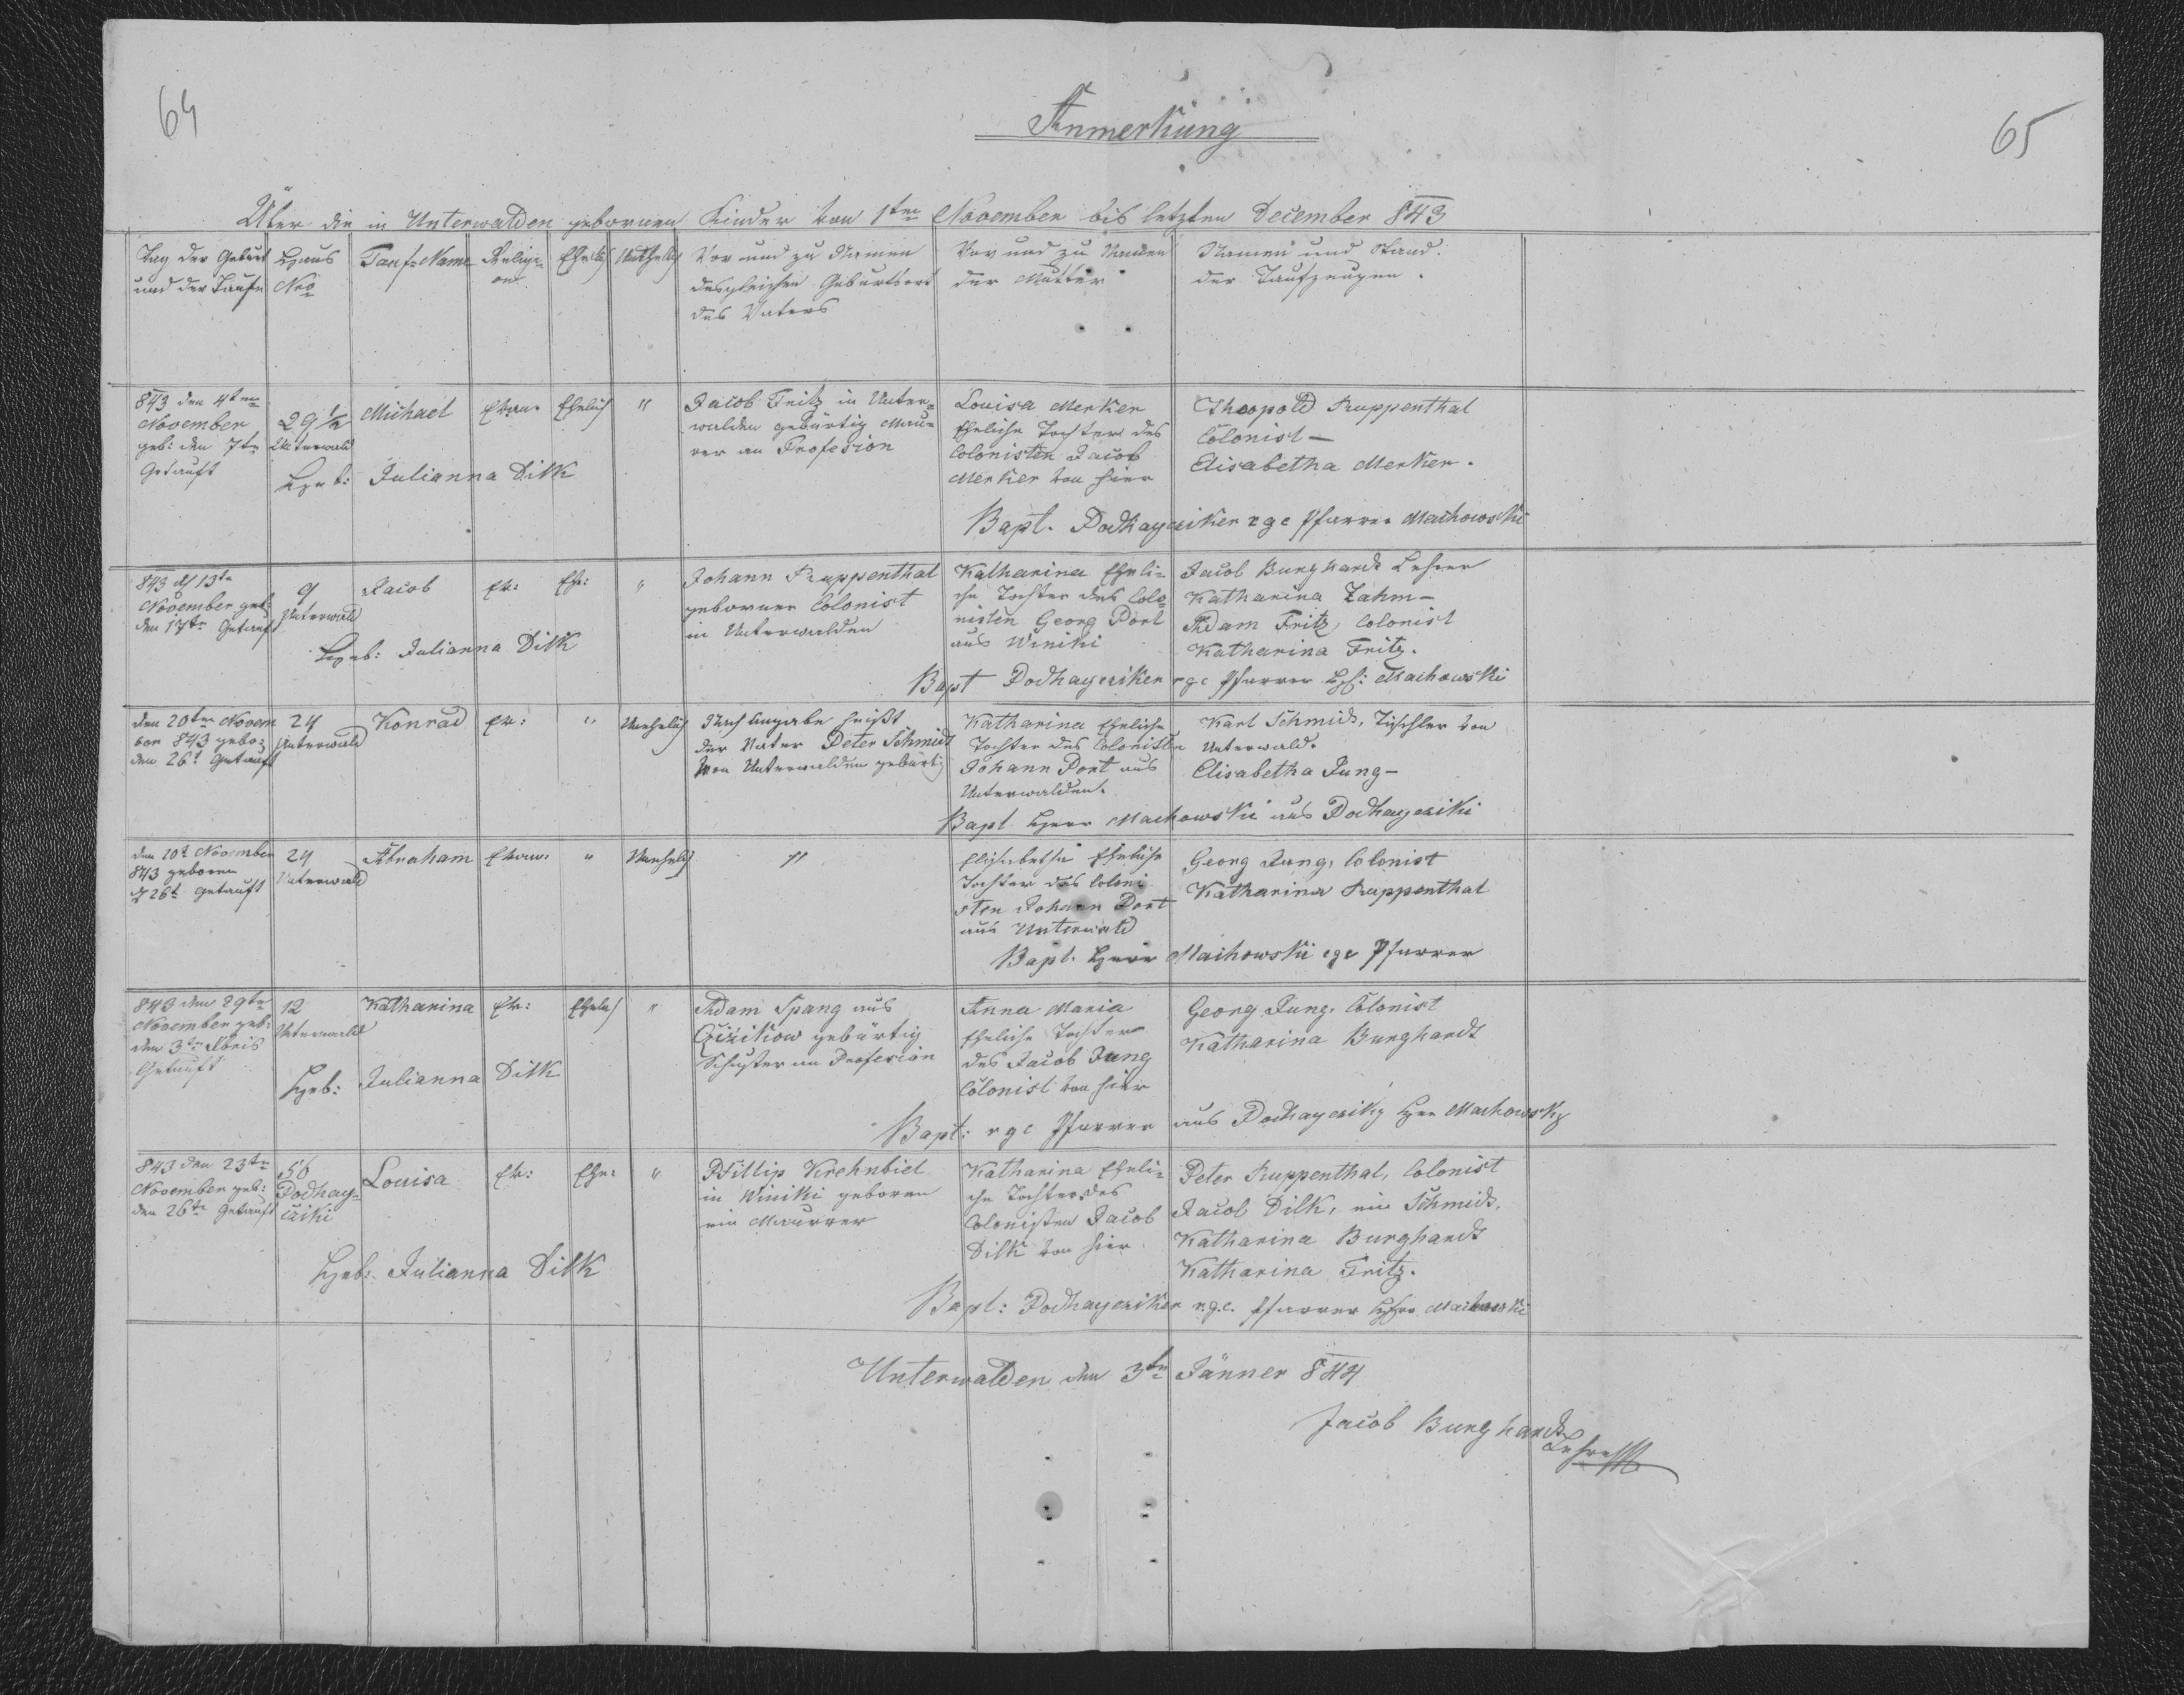 64
Anmerkung
65
Über die in Unterwalden gebornen Kinder von 1ten November bis letzten December 843
Tag der Geburt
und der Taufe
Haus
Nro
Tauf-Name
Religi-
on
Ehelich
Unehelich
Vor und zu Namen
desgleichen Geburtsort
des Vaters
Vor und zu Namen
der Mutter
Namen und Stand
der Taufzeugen.
843 den 4ten
November
geb: den 7ten
Getauft
29 1/2
Unterwald
Michael
Evan.
Ehelich
"
Jacob Fritz in Unter-
walden gebürtig Mau-
rer an Profesion
Louisa Merker
Eheliche Tochter des
Colonisten Jacob
Merker von hier
Theopold Ruppenthal
Colonist —
Elisabetha Merker.
Heb: Julianna Dilk
Bapt. Podhaycziker rgc Pfarrer Machowski
843 d 13te
November geb:
den 17te Getauft
9
Unterwald
Jacob
Ev:
Ehe:
"
Johann Ruppenthal
geborner Colonist
in Unterwalden
Katharina Eheli-
che Tochter des Colo-
nisten Georg Port
aus Winiki
Jacob Burghardt Lehrer
Katharina Zahm —
Adam Fritz, Colonist
Katharina Fritz.
Heb: Julianna Dilk
Bapt Podhaycziker rgc Pfarrer H: Machowski
den 20ten Novem
ber 843 gebo:
den 26t Getauft
24
Unterwald
Konrad
Ev:
"
Unehelich
Nach Angabe heißt
der Vater Peter Schmidt
von Unterwalden gebürtig
Katharina Eheliche
Tochter des Colonisten
Johann Port aus
Unterwalden.
Karl Schmidt, Tischler von
Unterwald.
Elisabetha Jung —
Bapt Herr Machowski aus Podhaycziki
den 20t November
843 geboren
d 26t getauft
24
Unterwald
Abraham
Evan:
"
Unehelich
"
Elisabetha Eheliche
Tochter des Coloni
sten Johann Port
aus Unterwald
Georg Jung, Colonist
Katharina Ruppenthal
Bapt. Herr Machowski rgc Pfarrer
843 den 29te
November geb:
den 3ten Xbris
Getauft
12
Unterwald
Katharina
Ev:
Ehelich
"
Adam Spang aus
Czizikow gebürtig
Schuster an Profesion
Anna Maria
Eheliche Tochter
des Jacob Jung
Colonist von hier
Georg Jung, Colonist
Katharina Burghardt
Heb: Julianna Dilk
Bapt: rgc Pfarrer aus Podhaycziky Herr Machowsky
843 den 23te
November geb:
den 26te Getauft
56
Podhay-
cziki
Louisa
Ev:
Ehe:
"
Phillip Krehnbiel
in Winiki geboren
ein Maurrer
Katharina Eheli-
che Tochter des
Colonisten Jacob
Dilk von hier
Peter Ruppenthal, Colonist
Jacob Dilk, ein Schmidt,
Katharina Burghardt
Katharina Fritz.
Heb: Julianna Dilk
Bapt: Podhaycziker r.g.c. Pfarrer Herr Machowski
Unterwalden den 3te Jänner 844
Jacob Burghardt
Lehrer